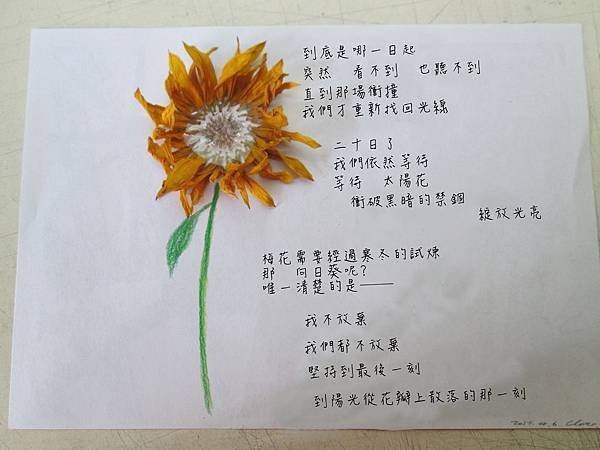 到底是哪一日起
突然　看不到　也聽不到
直到那場衝撞
我們才重新找回光線
二十日了
我們依然等待
等待　太陽花
衝破黑暗的禁錮
綻放光亮
梅花需要經過寒冬的試煉
那　向日葵呢？
唯一清楚的是——
我不放棄
我們都不放棄
堅持到最後一刻
到陽光從花瓣上散落的那一刻